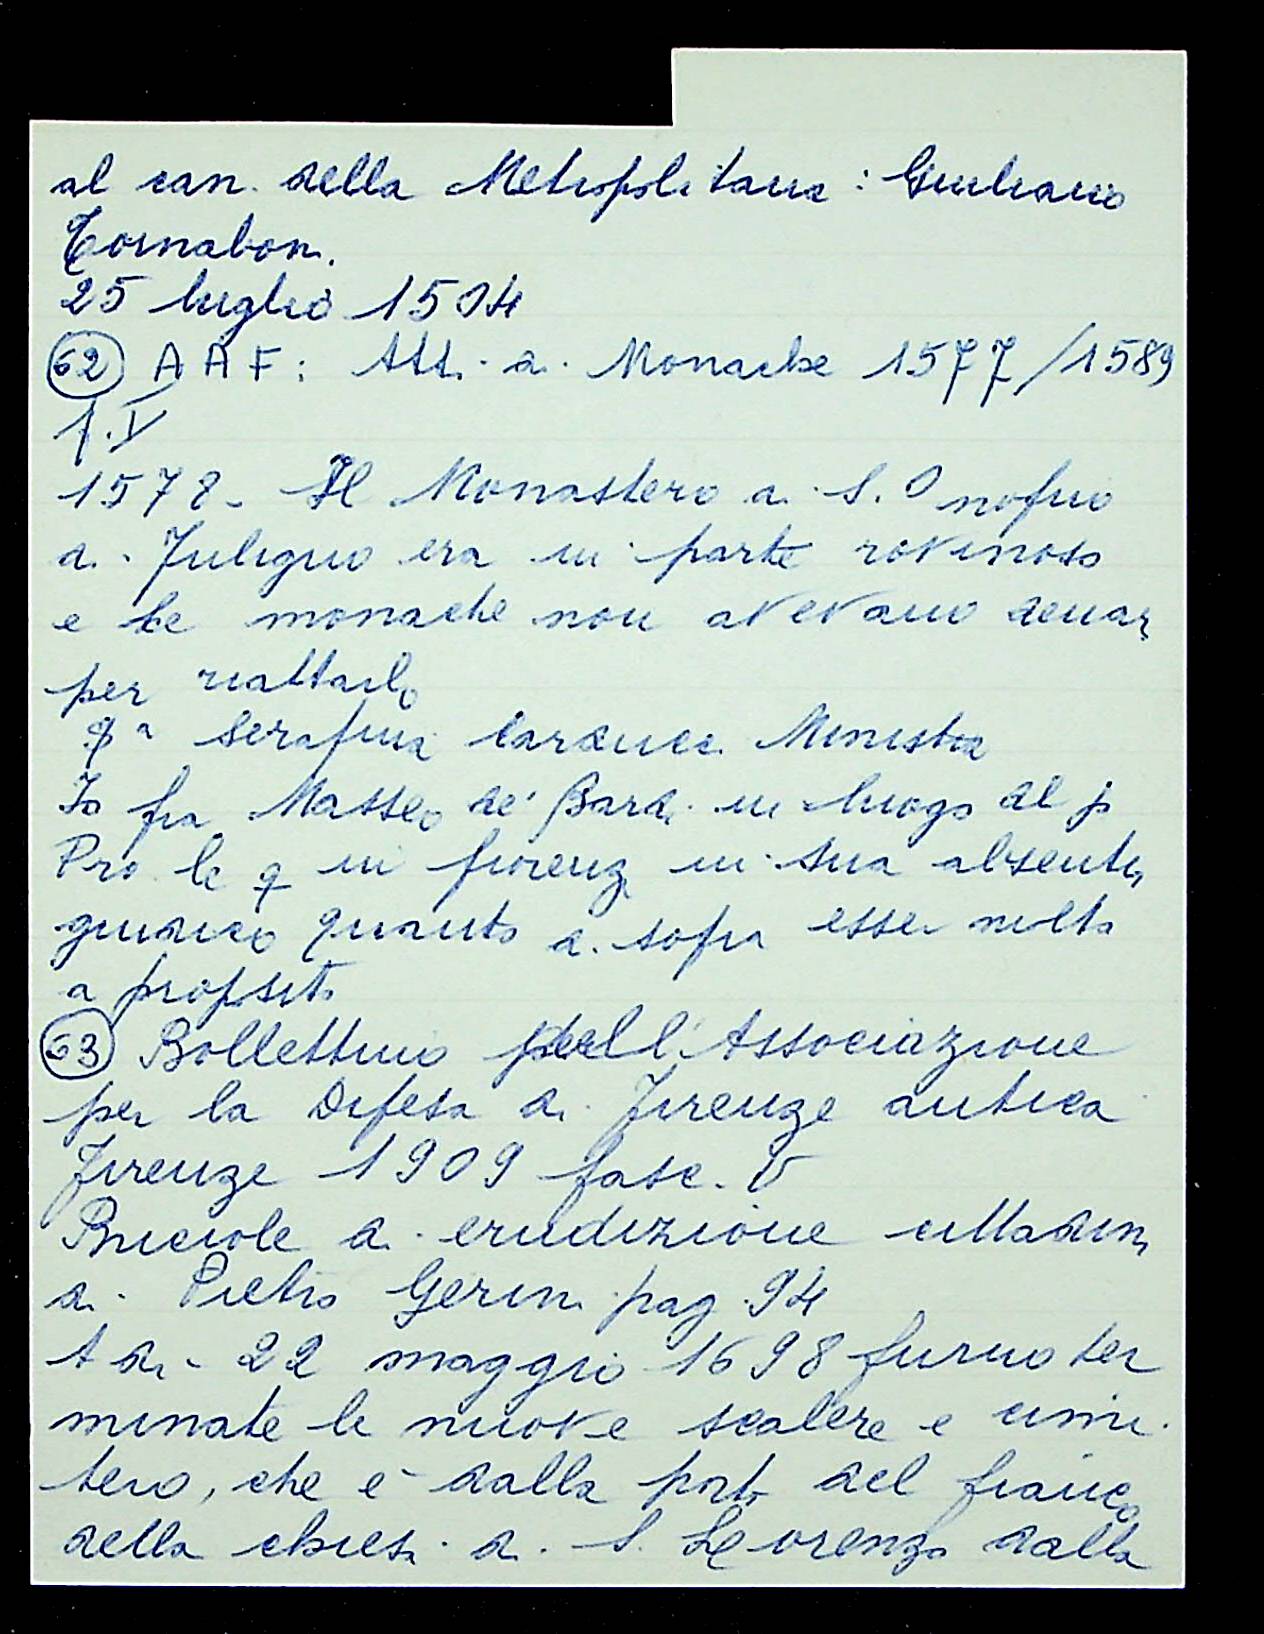 al can. della Metropolitana: Giuliano
Tornaboni.
25 luglio 1504
62 AAF: Atti di Monache 1577/1589
f. V
1578 - Il Monastero di S. Onofrio
di Fuligno era in parte rovinoso
e le monache non avevano denari
per riattarlo
Serafina Carducci Ministra
Io fra Masseo de' Bardi in luogo del p
Pro le q in fiorenza in sua absentia
giudico quanto di sopra esser molto
a proposito
63 Bollettino dell'Associazione
per la Difesa di Firenze antica
Firenze 1909 fasc. V
Briciole di erudizione cittadina
di Pietro Gerini pag. 94
A di 22 maggio 1698 furno ter
minate le nuove scalere e cimi
tero, che è dalla porta del fianco
della chiesa di S. Lorenzo dalla